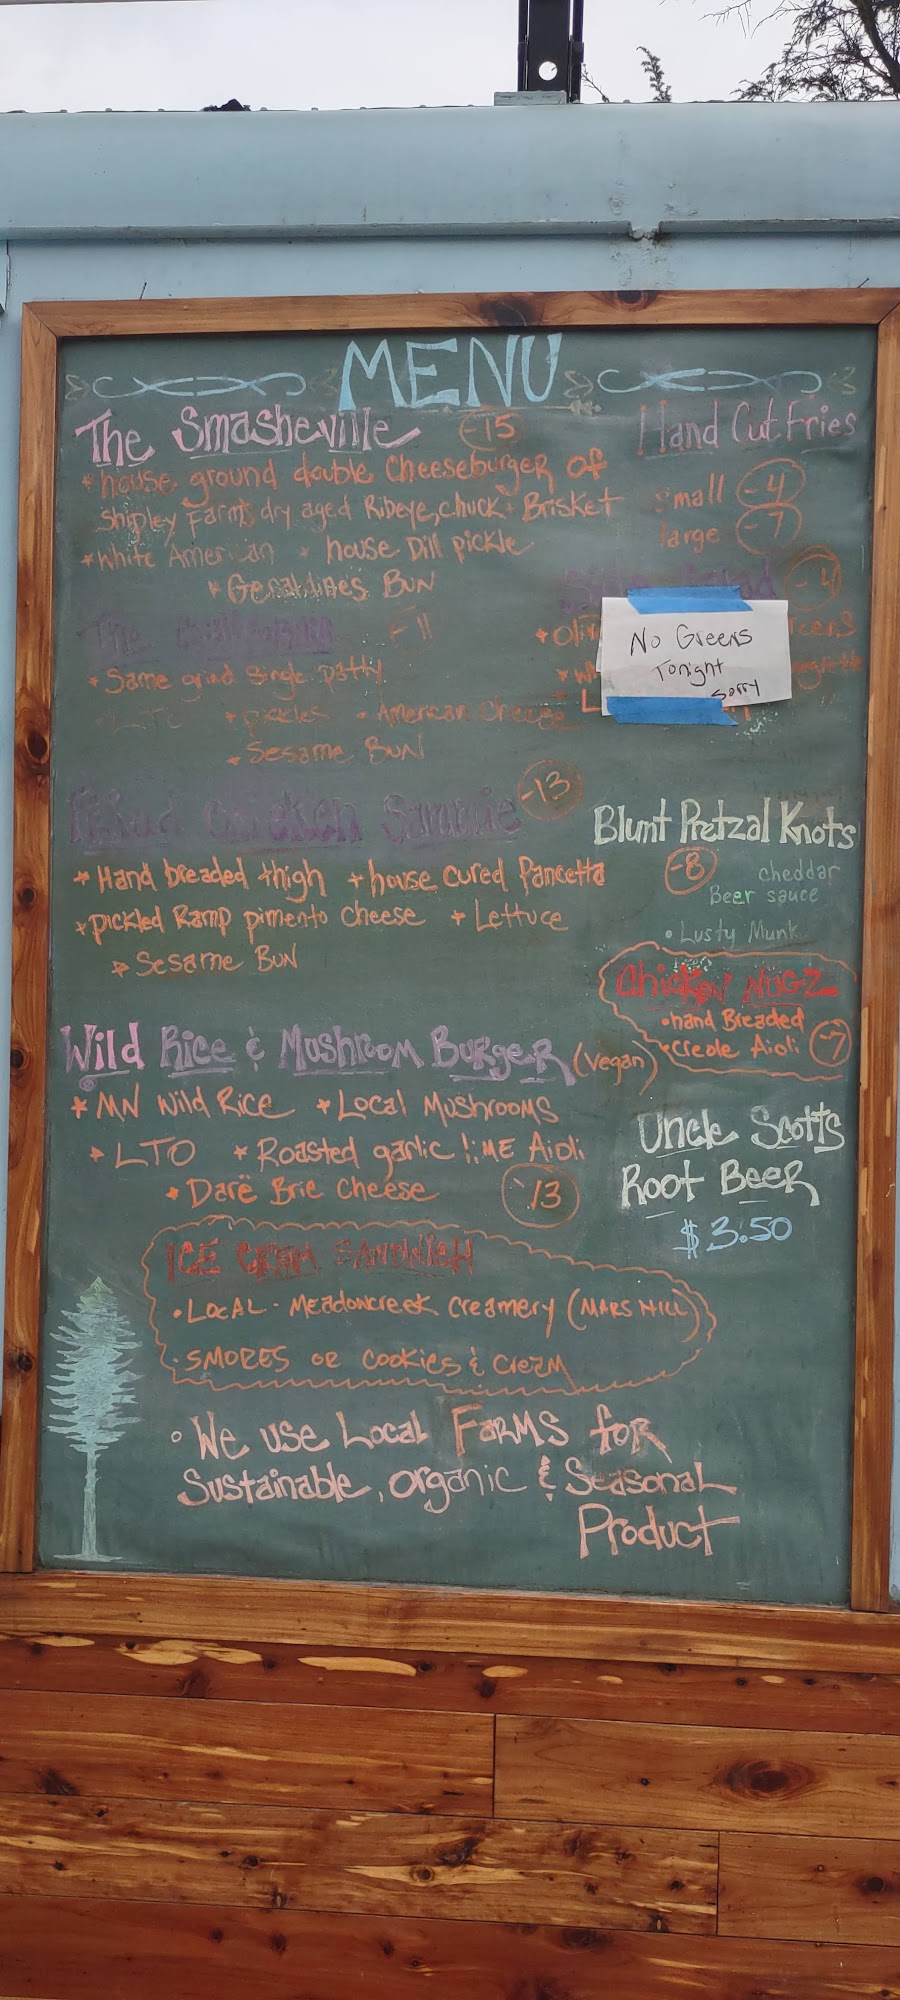 MENU
The Smasheville -15
* house ground double cheeseburger of
Shipley Farms, dry aged Ribeye, chuck + Brisket
* White American * house Dill pickle
* Geraldines BUN
The -11
* Same grind single patty
LTO * pickles * American Cheese
* Sesame BUN
Fried Chicken Sammie -13
* Hand breaded thigh * house cured Pancetta
* pickled Ramp pimento cheese * Lettuce
* Sesame BUN
Wild Rice & Mushroom Burger (vegan)
* MN Wild Rice * Local Mushrooms
* LTO * Roasted garlic lime Aioli
* Darë Brie Cheese 13
ICE CREAM SANDWICH
• LOCAL - Meadowcreek Creamery (MARS HILL)
• SMORES or Cookies & Cream
• We use Local Farms for
Sustainable, organic & Seasonal
Product
Hand Cut Fries
small -4
large -7
Side Salad -4
No Greens
Tonight
Sorry
Blunt Pretzal Knots
-8 cheddar
Beer sauce
• Lusty Munk
Chicken NUGZ
• hand Breaded
• creole Aioli -7
Uncle Scotts
Root Beer
$3.50